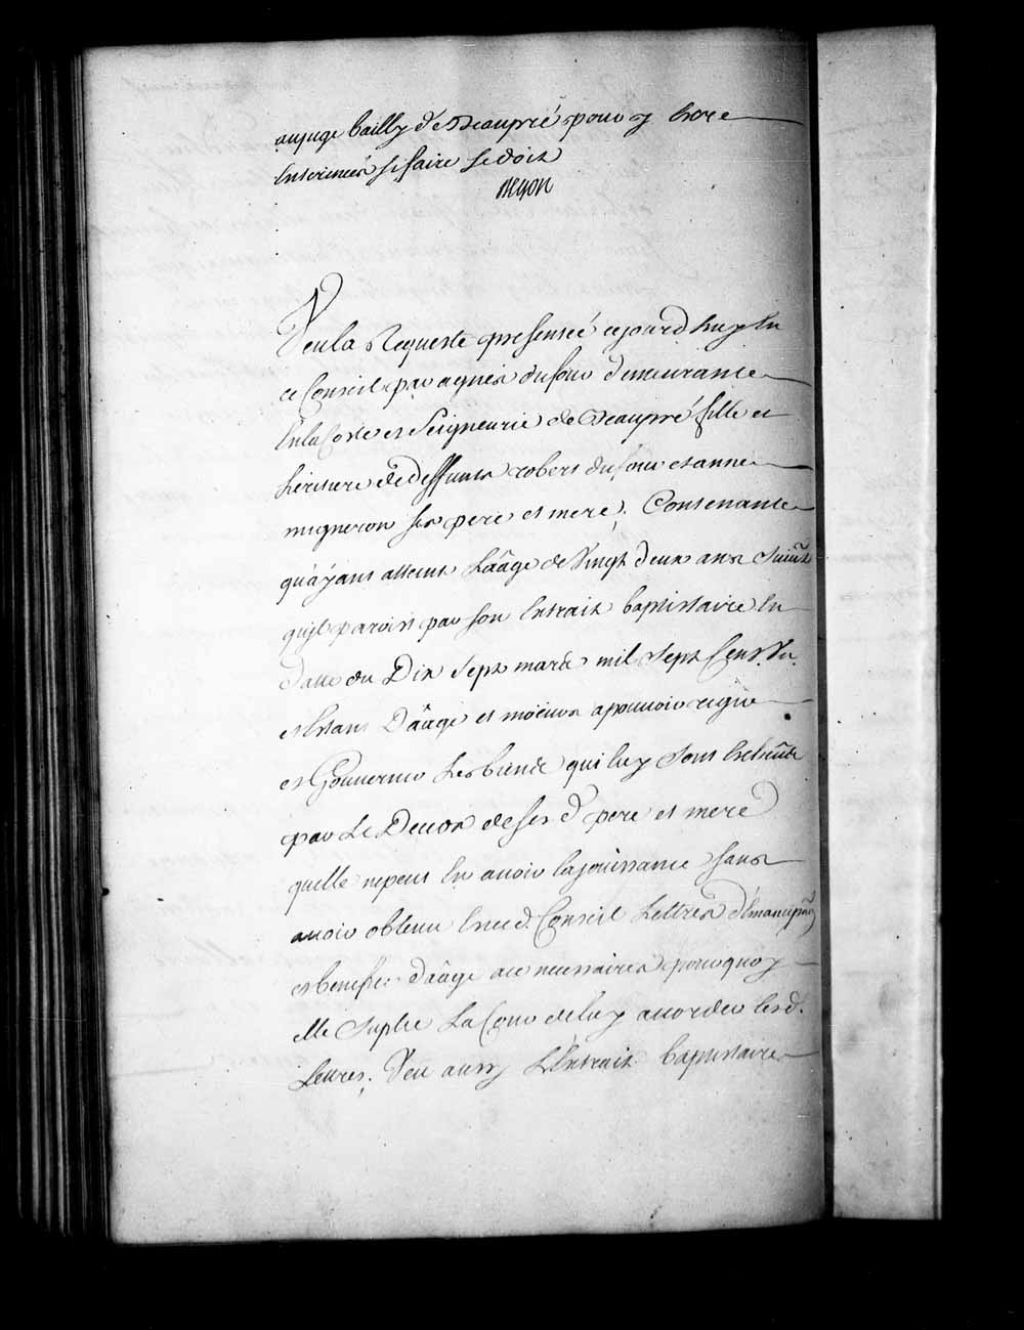 aujuge bailly de Beaupré pour y Estre
Enterinées si faire se doit
Begon
Veu la Requeste presentée cejourd'huy En
ce Conseil par agnes dufour demeurante
En la Coste et Seigneurie de Beaupré fille et
heritiere de deffunts robert dufour et anne
migneron ses pere et mere, Contenante
qu'ayant atteint L'aâge de Vingt deux ans Suiũt
quil paroist par son Extrait baptistaire En
datte du Dix Sept mars mil Sept Cent Un
et Estant D'aâge et moeurs a pouuoir regir
et Gouuerner Les biens qui luy Sont Escheus
par Le Decez de ses d. pere et mere
quelle ne peut En auoir la joüissance sans
auoir obtenu En ced. Conseil Lettres d'Emancipaõn
et benefice d'aâge ace necessaires pourquoy
elle Suplie La Cour de luy accorder lesd.
Lettres. Veu aussy L'Extrait baptistaire